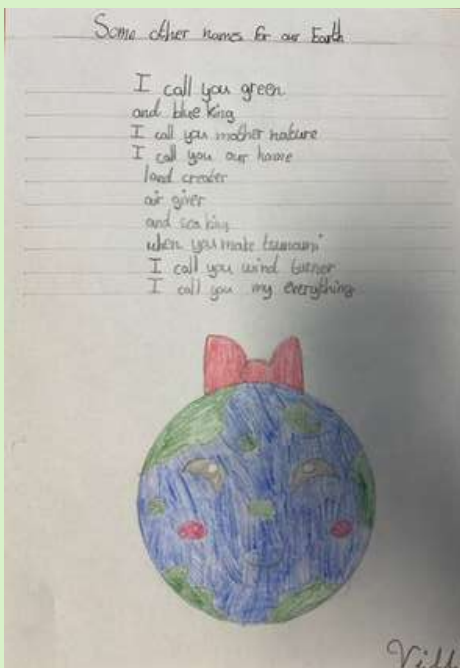 Some other names for our Earth
I call you green
and blue king
I call you mother nature
I call you our home
land creater
air giver
and sea king
when you make tsunami
I call you wind turner
I call you my everything